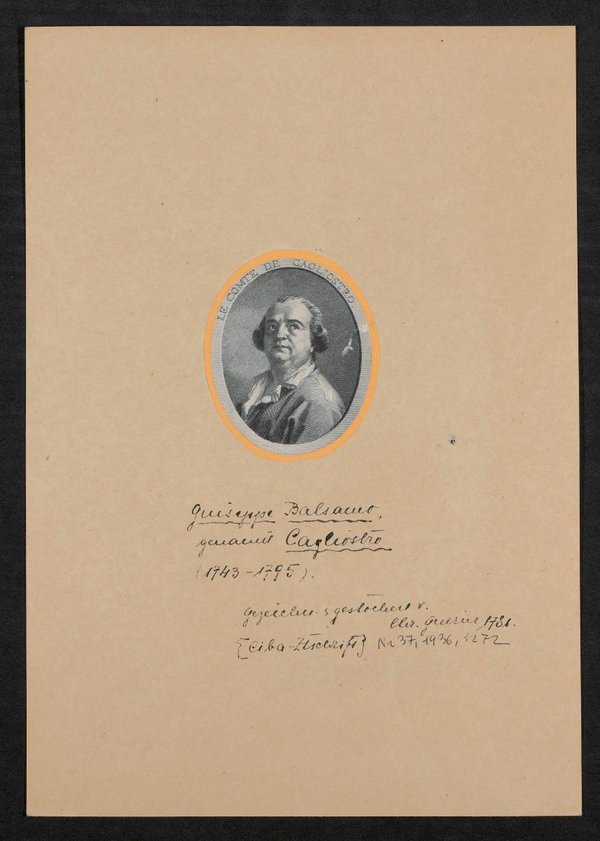 LE COMTE DE CAGLIOSTRO.
Guiseppe Balsamo,
genannt Cagliostro
(1743-1795).
gezeichn. & gestochen v.
Chr. Guérin, 1781.
{Ciba-Ztschrift} Nr 37, 1936, 1272